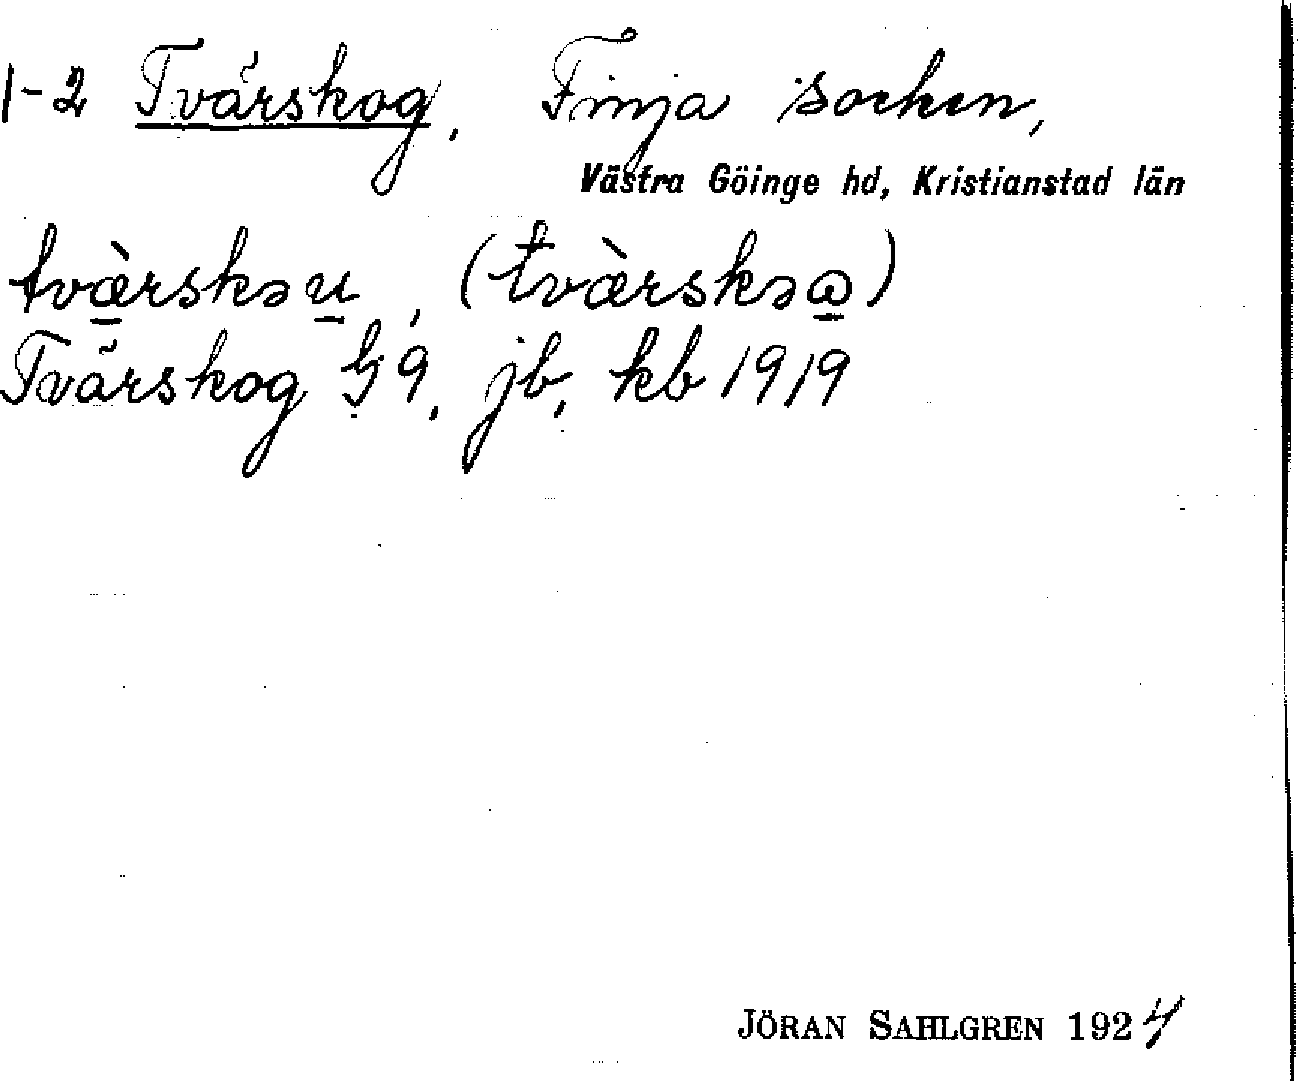 1-2 Tvärskog, Finja socken,
Västra Göinge hd, Kristianstad län
tvæ̀rskəu, (tvæ̀rskəω)
Tvärskog G 9, jb, kb 1919
JÖRAN SAHLGREN 1924